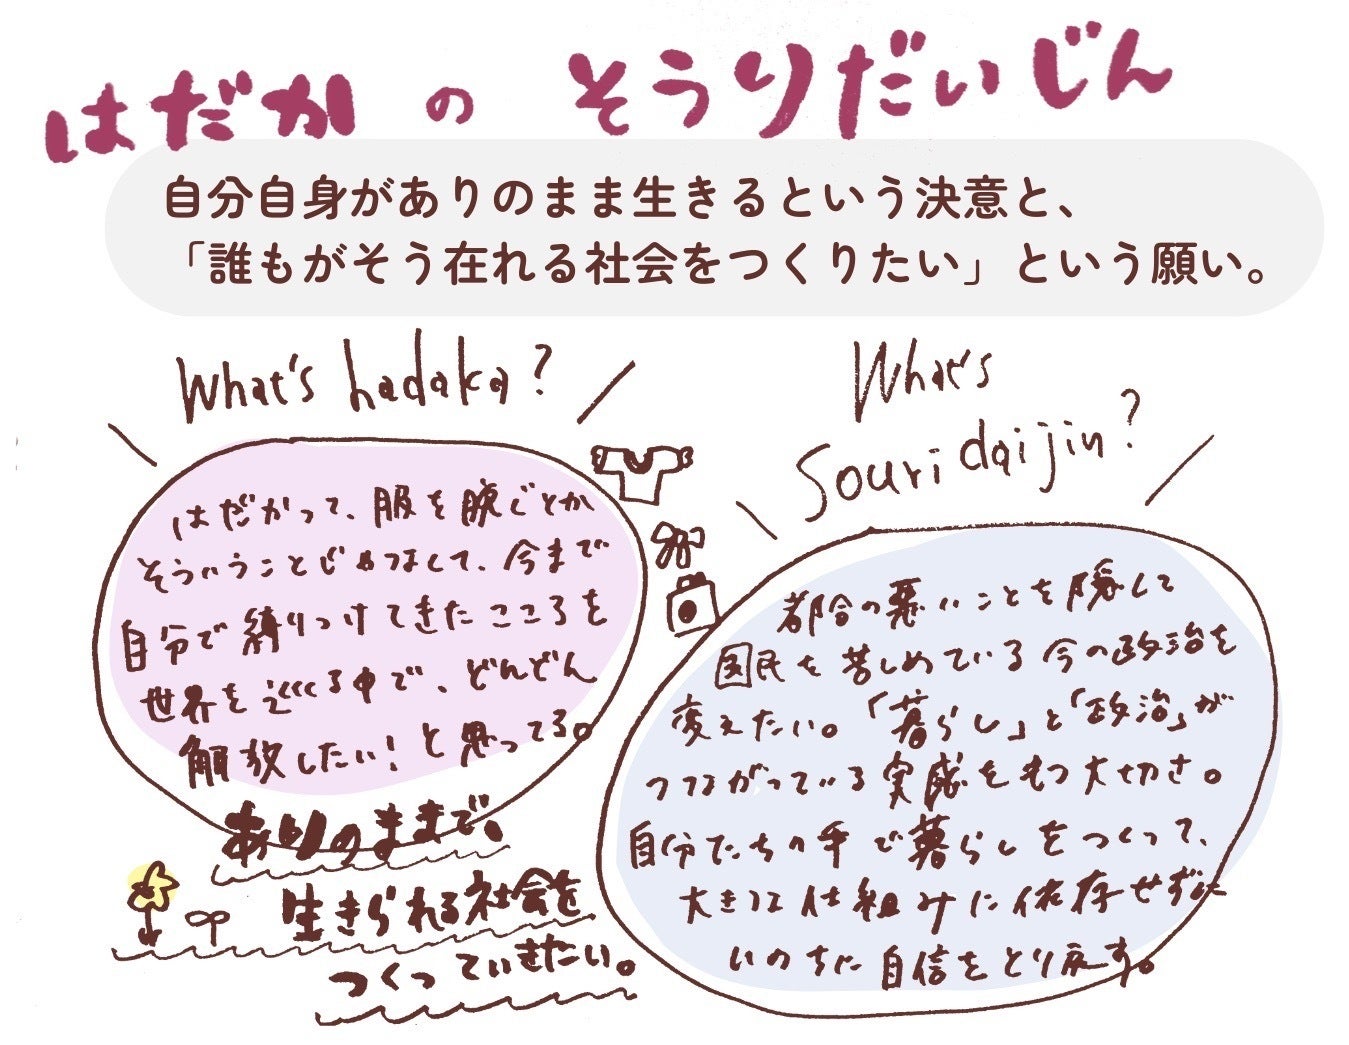 はだか の そうりだいじん
自分自身がありのまま生きるという決意と、
「誰もがそう在れる社会をつくりたい」という願い。
What's hadaka?
はだかって、服を脱ぐとか
そういうことじゃなくて、今まで
自分で縛りつけてきたこころを
世界を巡る中で、どんどん
解放したい！と思ってる。
ありのままで、
生きられる社会を
つくっていきたい。
What's
Souri daijin?
都合の悪いことを隠して
国民を苦しめている今の政治を
変えたい。「暮らし」と「政治」が
つながっている実感をもつ大切さ。
自分たちの手で暮らしをつくって、
大きな仕組みに依存せずに
いのちに自信をとり戻す。